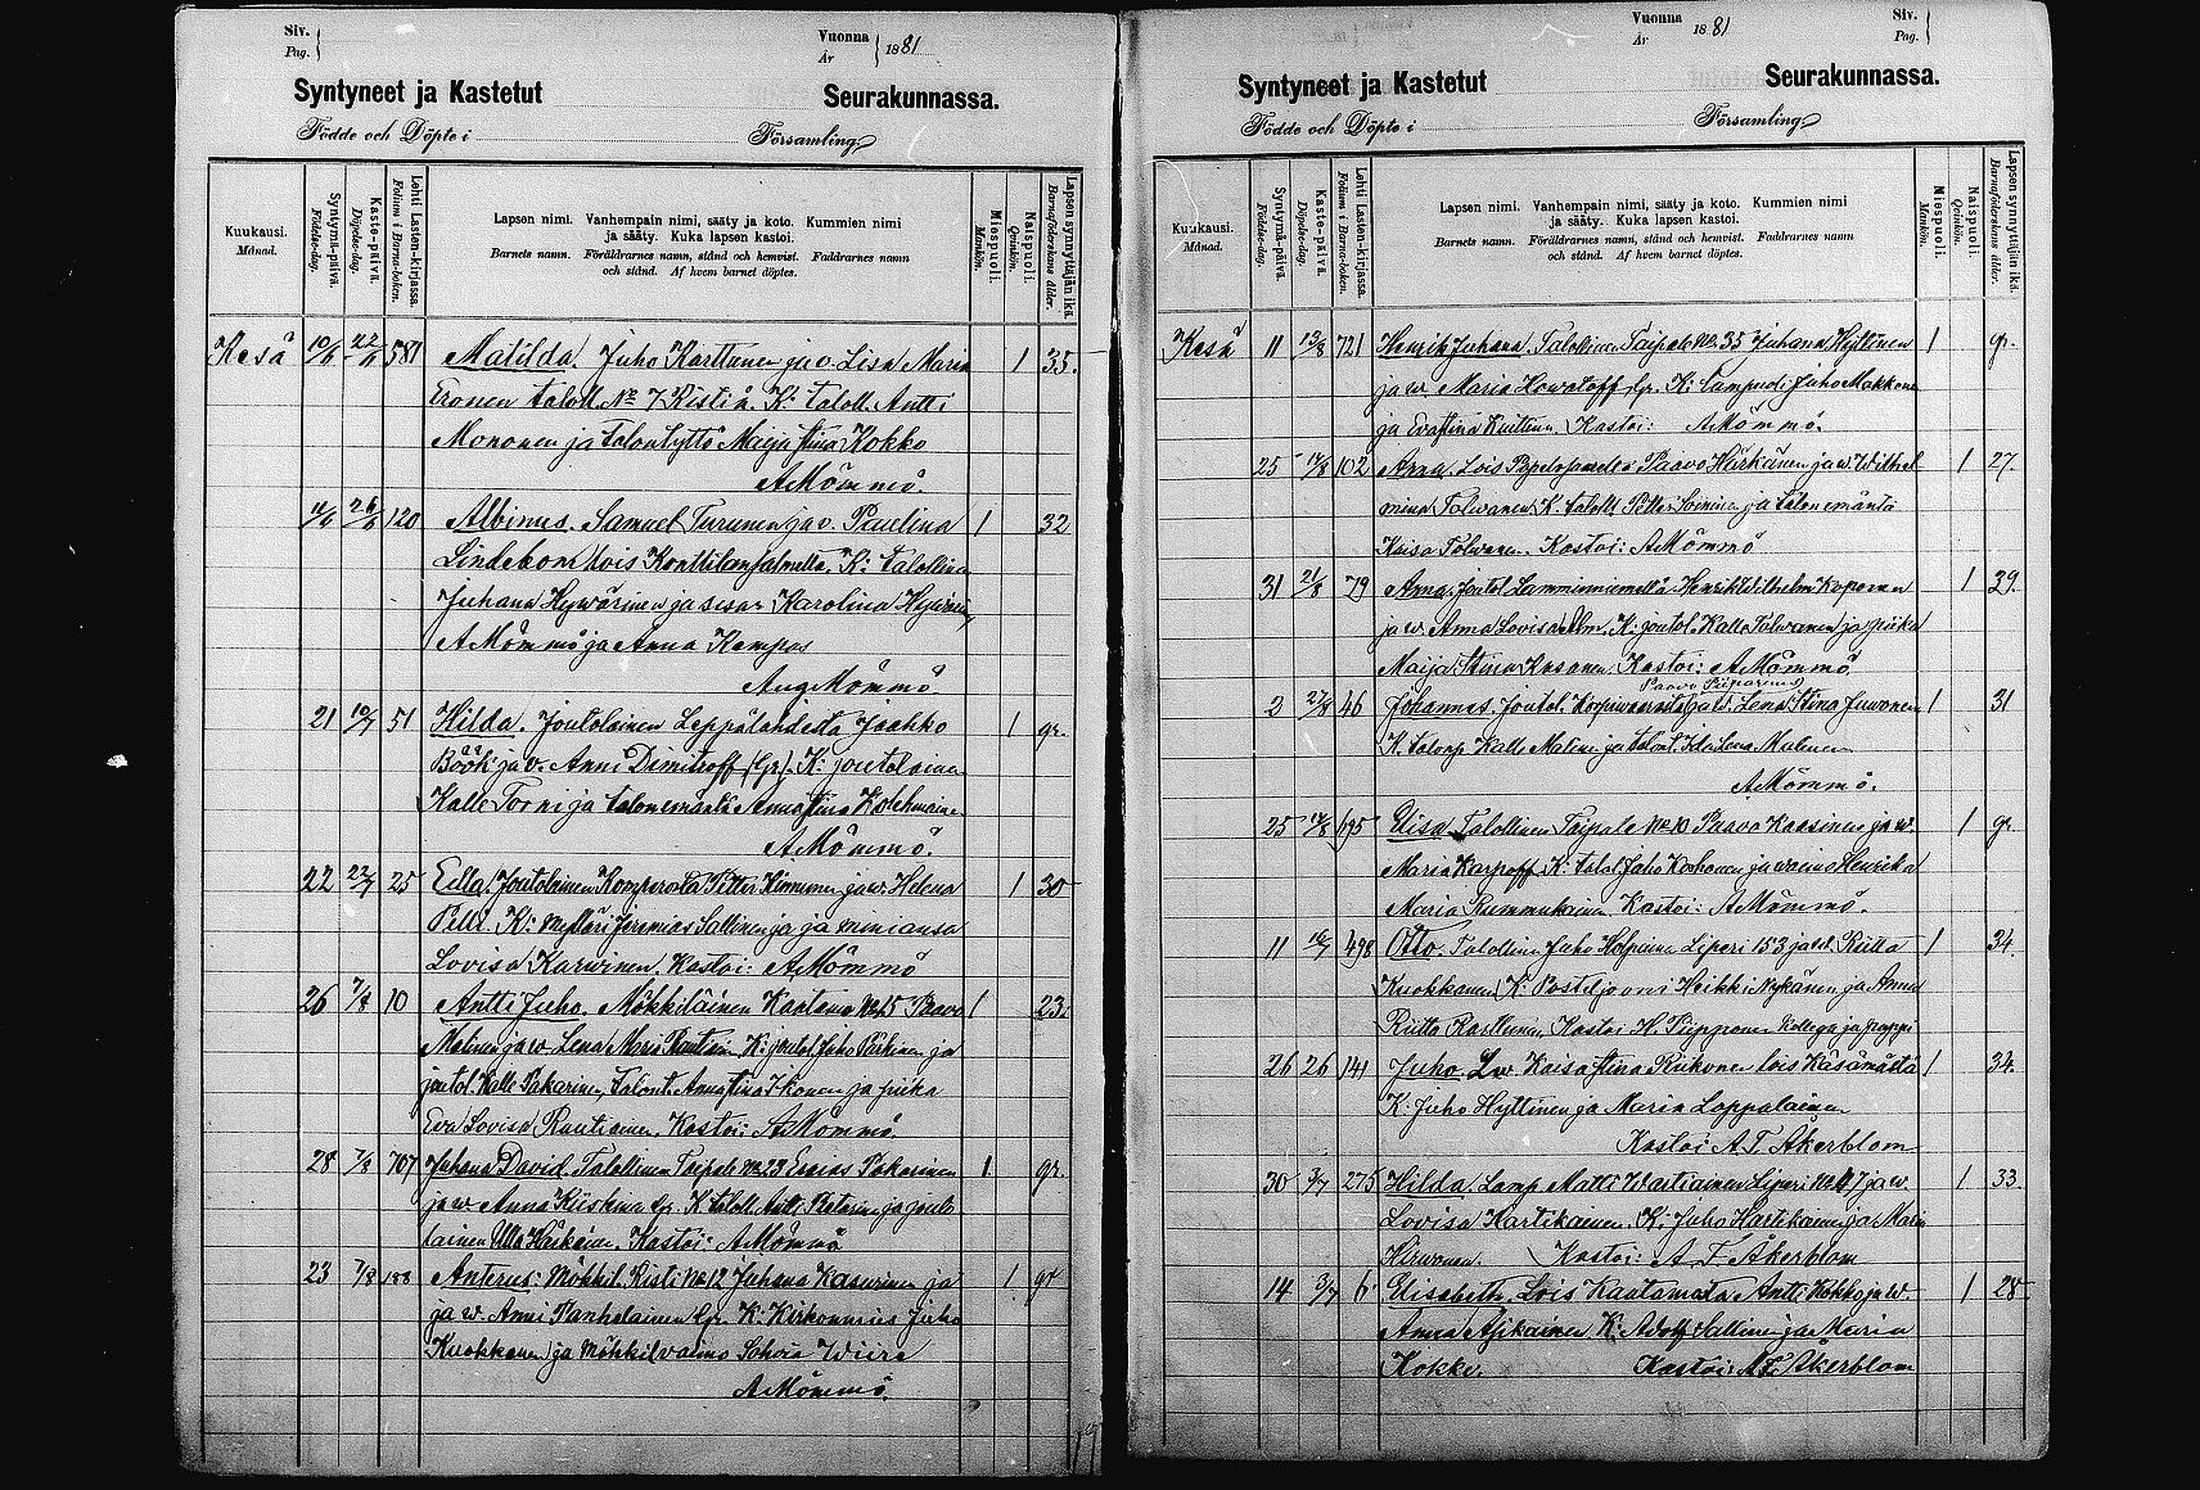 Siv.
Pag.
Vuonna
År
1881
Syntyneet ja Kastetut Seurakunnassa.
Födde och Döpte i Församling
Kuukausi.
Månad.
Syntymä-päivä.
Födelse-dag.
Kaste-päivä.
Döpelse-dag.
Lehti Lasten-kirjassa.
Folium i Barna-boken.
Lapsen nimi. Vanhempain nimi, sääty ja koto. Kummien nimi
ja sääty. Kuka lapsen kastoi.
Barnets namn. Föräldrarnes namn, stånd och hemvist. Faddrarnes namn
och stånd. Af hvem barnet döptes.
Miespuoli.
Mankön.
Naispuoli.
Qvinkön.
Lapsen synnyttäjän ikä.
Barnaföderskans ålder.
Kesä 10/6 22/6 581 Matilda. Juho Karttunen ja v. Lisa Maria 1 35.
Eronen taloll. No 7 Risti K: taloll. Antti
Mononen ja talontyttö Maija Stina Kokko
A Mömmö.
11/6 26/6 120 Albinus. Samuel Turunen ja v. Paulina 1 32
lois Konttilansalmelta. K: talollinen
Juhana Hyvärinen ja sisar Karolina
A Mömmö ja Anna Kempas
Aug Mömmö
21 10/7 51 Hilda. Joutolainen Leppälahdesta Jaakko 1 gr.
Böök ja v. Anni Dimitroff (gr). K: joutolainen
Kalle Torni ja talonemäntä Anna Stina Kolehmainen
A Mömmö.
22 22/7 25 Ella. Joutolainen Petter Kinnunen ja w. Helena 1 30
K: Mylläri Jeremias Sallinen ja ja miniansa
Lovisa Karvinen. Kastoi: A Mömmö
26 7/8 10 Antti Juho. Mökkiläinen Kaatamo No 15 Paavo 1 23.
Malinen ja w. Lena Maria Rautiain K: joutol. Juho ja
joutol. Kalle Pakarinen, talont. Anna Stina Ikonen ja piika
Eva Lovisa Rautiainen. Kastoi: A Mömmö.
28 7/8 707 Juhana David. Talollinen Taipale No 23 Esaias Pakarinen 1 gr.
ja w. Anna Kiiskinen gr. K. taloll. Antti ja jouto
lainen Ulla Härkönen. Kastoi: A Mömmö
23 7/8 188 Anterus: Mökkil. Risti No 12 Juhana Kasurinen ja 1 gr
ja w. Anni Panhelainen gr. K: Juho
Kuokkanen ja Mökkil vaimo
A Mömmö.
Vuonna
År
1881
Siv.
Pag.
Syntyneet ja Kastetut Seurakunnassa.
Födde och Döpte i Församling
Kuukausi.
Månad.
Syntymä-päivä.
Födelse-dag.
Kaste-päivä.
Döpelse-dag.
Lehti Lasten-kirjassa.
Folium i Barna-boken.
Lapsen nimi. Vanhempain nimi, sääty ja koto. Kummien nimi
ja sääty. Kuka lapsen kastoi.
Barnets namn. Föräldrarnes namn, stånd och hemvist. Faddrarnes namn
och stånd. Af hvem barnet döptes.
Miespuoli.
Mankön.
Naispuoli.
Qvinkön.
Lapsen synnyttäjän ikä.
Barnaföderskans ålder.
Kesä 11 13/8 721 Henrik Juhana. Talollinen Taipale No 35 Juhana Hyttinen 1 gr.
ja w. Maria gr. K: lampuoti Juho Makkone
ja Eva Stina Kastoi: A Mömmö.
25 14/8 102 Anna. Lois Paavo Härkönen ja w. Wilhel 1 27.
mina Tolwanen K: taloll Petter Soininen ja talon emäntä
Kaisa Tolwanen. Kastoi: A Mömmö
31 21/8 79 Anna. Joutol. Lamminniemeltä Henrik Wilhelm Koponen 1 39.
ja w. Anna Lovisa Alm. K: joutol. Kalle Tolwanen ja piika
Maija Stina Kastoi: A Mömmö.
Paavo Piiparinen
2 27/8 46 Johannes. Joutol. ja w. Lena Stina Juvonen 1 31
K. talonp. Kalle Malinen ja talont. Ida Lena Malinen
A Mömmö.
25 14/8 695 Elisa. Talollinen Taipale No 10 Paavo Kaasinen ja w. 1 gr
Maria Karpoff. K: talol. Juho Korhonen ja waimo Henrika
Maria Rummukainen. Kastoi: A Mömmö.
11 16/7 498 Otto. Talollinen Juho Holopainen Liperi 153 ja w. Riitta 1 34.
Kuokkanen K: Postiljooni Heikki Nykänen ja Anna
Riitta Karttunen, Kastoi H. Piipponen Kollega ja pappi
26 26 141 Juho. Kaisa Stina Riikonen lois Käsämästä 1 34.
K: Juho Hyttinen ja Maria Loppalainen
Kastoi A. F. Åkerblom
30 3/7 275 Hilda. Lamp. Matti Wartiainen Liperi No 47 ja w. 1 33.
Lovisa Hartikainen. K: Juho Hartikainen ja Maria
Hirwonen. Kastoi: A. F. Åkerblom
14 3/7 6 Elisabeth. Lois Kaatamosta Antti Kokko ja w. 1 28
Anna Asikainen K: Adolf Sallinen ja Maria
Kokko. Kastoi: A. F. Åkerblom